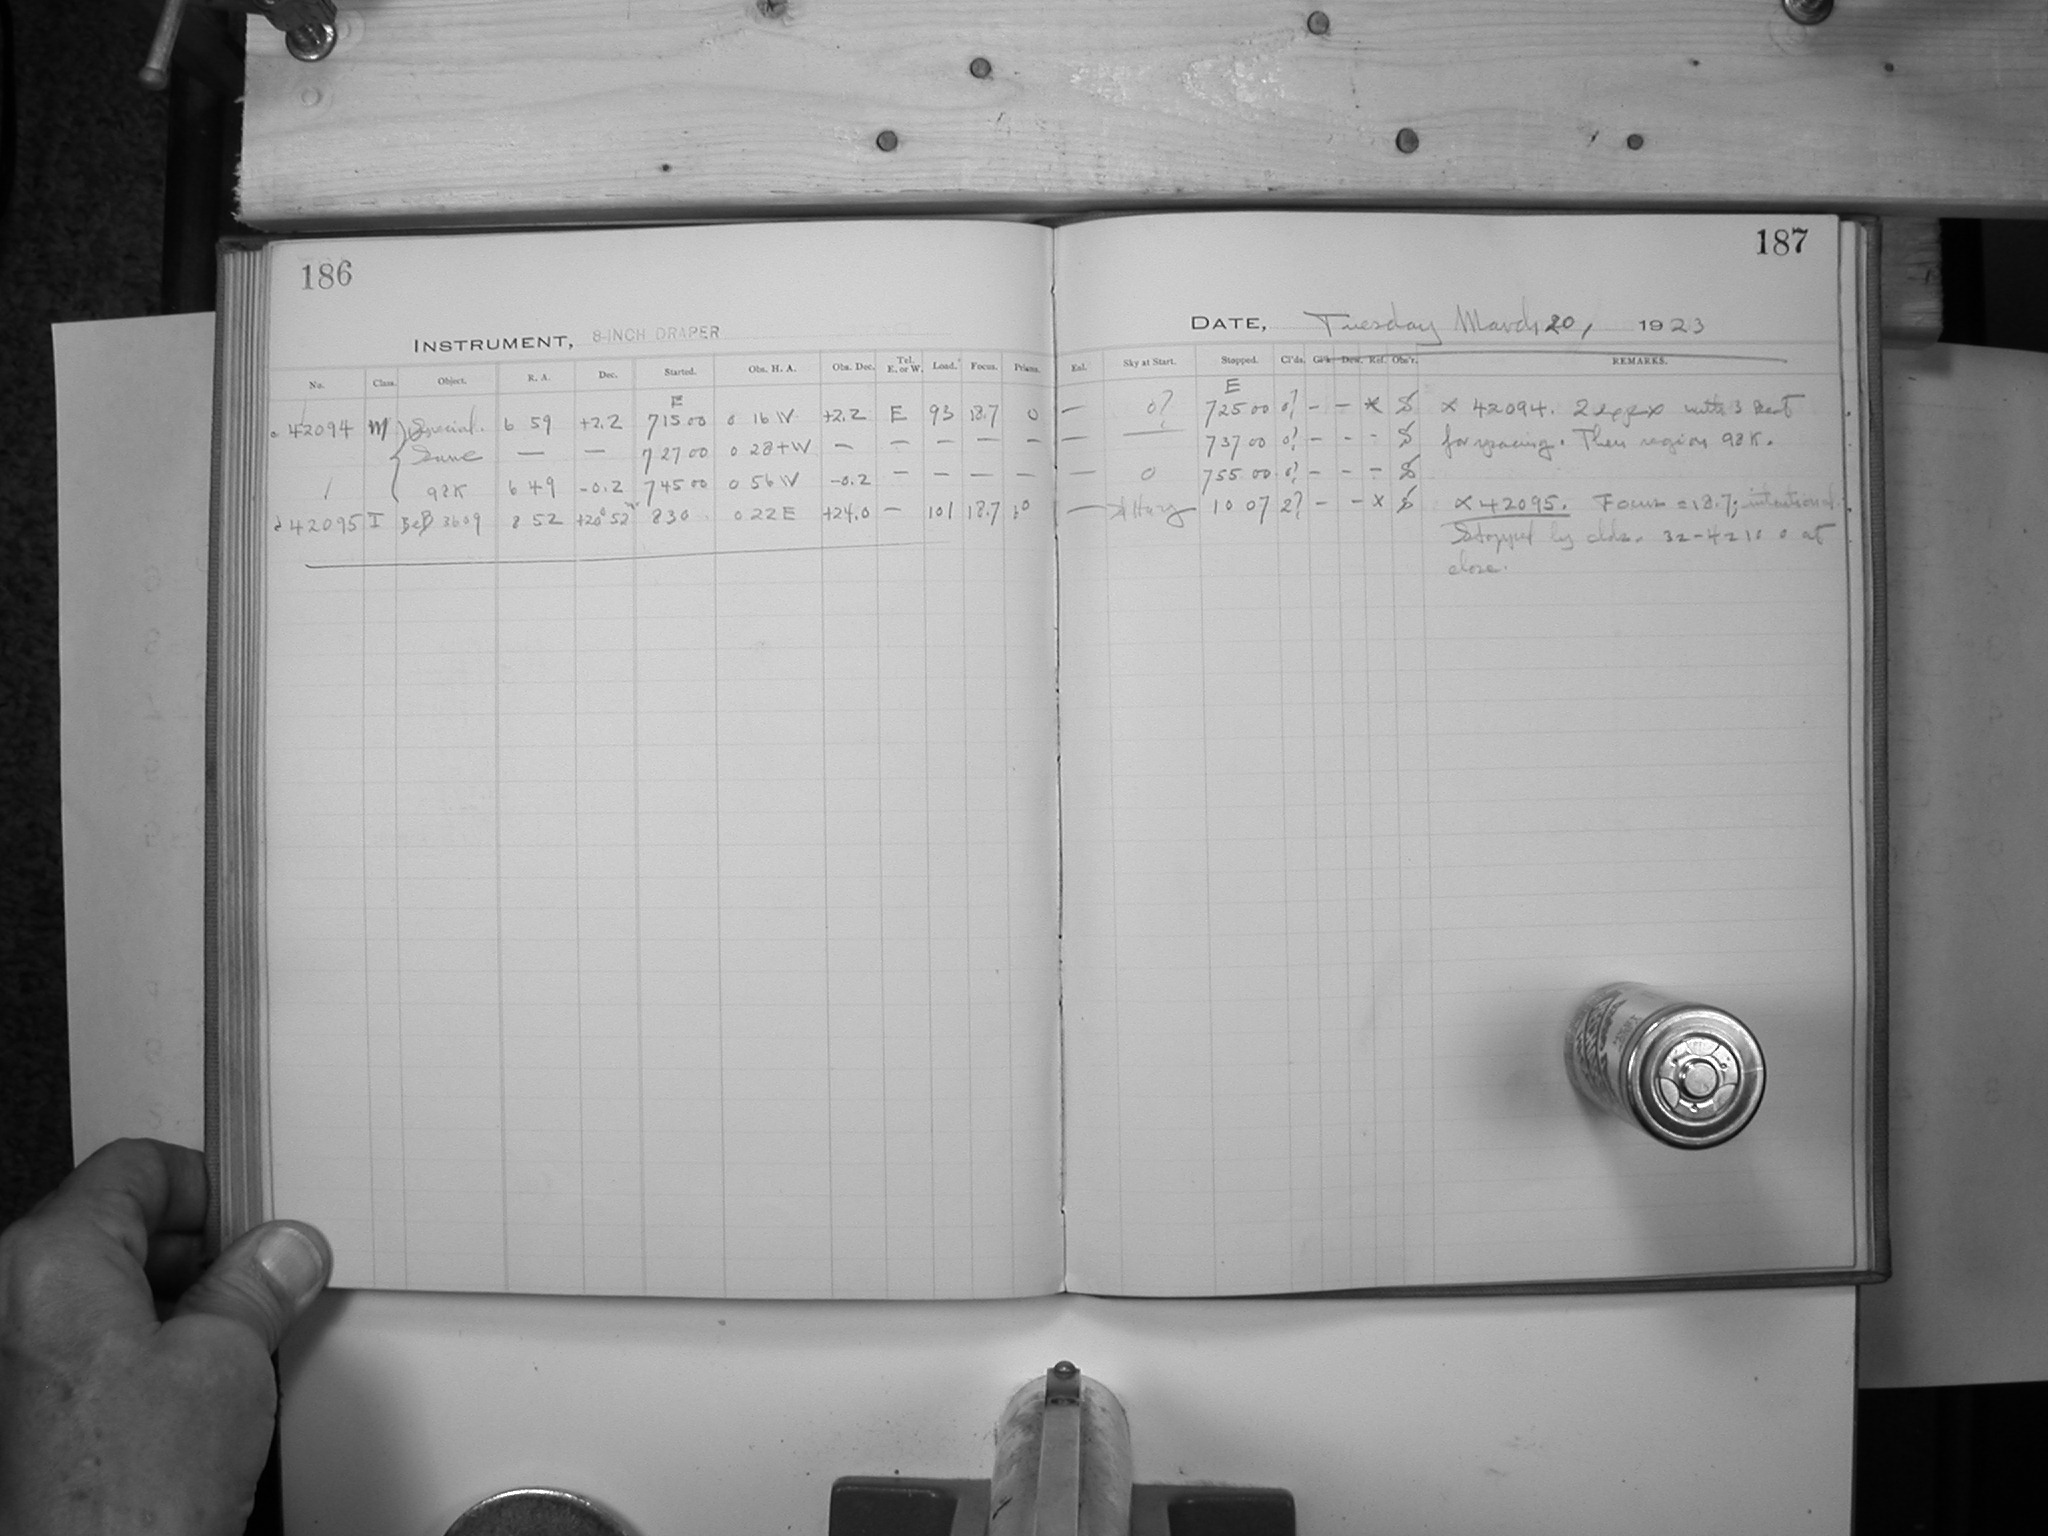 186
187
INSTRUMENT, 8-INCH DRAPER
DATE, Tuesday March 20, 1923
No. Class. Object. R. A. Dec. Started. Obs. H. A. Obs. Dec. Tel. E. or W. Load. Focus. Prisms.
Exl. Sky at Start. Stopped. Cl'ds. Gr'k Dew. Ref. Obs'r. REMARKS.
E
E
42094 M Special. 6 59 +2.2 7 15 00 0 16 W +2.2 E 93 18.7 0
— 0? 7 25 00 0? – – * S α 42094. 2 exps with 3 sect
Same — — 7 27 00 0 28+W — — — — —
— 7 37 00 0? – – – S for spacing. Then region 92K.
92K 6 49 -0.2 7 45 00 0 56 W -0.2 — — — —
— 0 7 55 00 0? – – – S
42095 I BeB 3609 8 52 +20° 52' 8 30 0 22 E +24.0 — 101 18.7 0
— Hazy 10 07 2? – – x S α 42095. Focus = 18.7; intentional.
Stopped by clds. 32-4210 0 at
close.